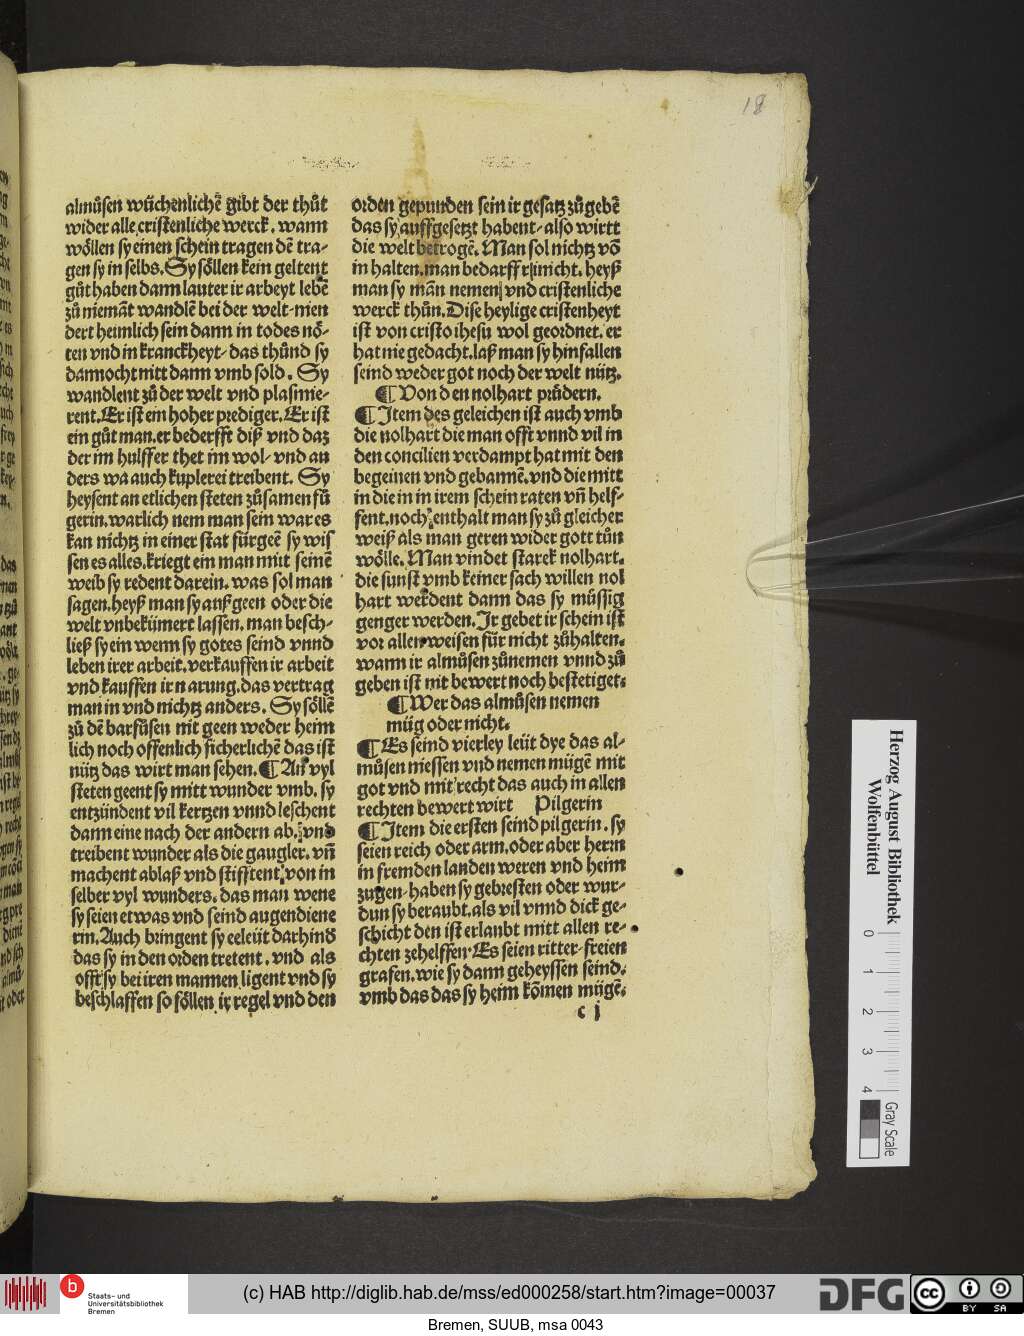 18
almůsen wůchenlichẽ gibt der thůt
wider alle cristenliche werck. wann
wöllen sy einen schein tragen dẽ tra-
gen sy in selbs. Sy söllen kein geltent
gůt haben dann lauter ir arbeyt lebẽ
zů niemãt wandlẽ bei der welt-nien
dert heimlich sein dann in todes nö-
ten vnd in kranckheyt- das thůnd sy
dannocht nitt dann vmb sold. Sy
wandlent zů der welt vnd plasmie-
rent. Er ist ein hoher prediger. Er ist
ein gůt man. er bederfft diß vnd daz
der im hulffer thet im wol- vnd an
ders wa auch kuplerei treibent. Sy
heysent an etlichen steten zůsamen fů
gerin. warlich nem man sein war es
kan nichtz in einer stat fürgeẽ sy wis
sen es alles. kriegt ein man mit seinẽ
weib sy redent darein. was sol man
sagen. heyß man sy außgeen oder die
welt vnbekümert lassen. man besch-
ließ sy ein wenn sy gotes seind vnnd
leben irer arbeit. verkauffen ir arbeit
vnd kauffen ir narung. das vertrag
man in vnd nichtz anders. Sy söllẽ
zů dẽ barfůsen nit geen weder heim
lich noch offenlich sicherlichẽ das ist
nütz das wirt man sehen. ¶ An vyl
steten geent sy mitt wunder vmb. sy
entzündent vil kertzen vnnd leschent
dann eine nach der andern ab. vnd
treibent wunder als die gaugler. vñ
machent ablaß vnd stifftent von in
selber vyl wunders. das man wene
sy seien etwas vnd seind augendiene
rin. Auch bringent sy eeleüt darhind
das sy in den orden tretent. vnd als
offt sy bei iren mannen ligent vnd sy
beschlaffen so söllen ir regel vnd den
orden gepunden sein ir gesatz zůgebẽ
das sy auffgesetzt habent- also wirtt
die welt betrogẽ. Man sol nichtz võ
in halten. man bedarff ir nicht. heyß
man sy mãn nemen vnd cristenliche
werck thůn. Dise heylige cristenheyt
ist von cristo ihesu wol geordnet. er
hat nie gedacht. laß man sy hinfallen
seind weder got noch der welt nütz.
¶ Von den nolhart průdern.
¶ Item des geleichen ist auch vmb
die nolhart die man offt vnnd vil in
den concilien verdampt hat mit den
begeinen vnd gebannẽ. vnd die mitt
in die in in irem schein raten vñ helf-
fent. noch enthalt man sy zů gleicher
weiß als man geren wider gott tůn
wölle. Man vindet starck nolhart.
die sunst vmb keiner sach willen nol
hart werdent dann das sy müssig
genger werden. Ir gebet ir schein ist
vor allen weisen für nicht zůhalten.
wann ir almůsen zůnemen vnnd zů
geben ist nit bewert noch bestetiget.
¶ Wer das almůsen nemen
müg oder nicht.
¶ Es seind vierley leüt dye das al-
můsen niessen vnd nemen mügẽ mit
got vnd mit recht das auch in allen
rechten bewert wirt Pilgerin
¶ Item die ersten seind pilgerin. sy
seien reich oder arm. oder aber herrn
in fremden landen weren vnd heim
zugen- haben sy gebresten oder wur-
dun sy beraubt. als vil vnnd dick ge-
schicht den ist erlaubt mitt allen re-
chten zehelffen. Es seien ritter-freien
grafen. wie sy dann geheyssen seind.
vmb das das sy heim kõmen mügẽ.
c j
Herzog August Bibliothek
Wolfenbüttel
0 1 2 3 4
Gray Scale
b
Staats- und
Universitätsbibliothek
Bremen
(c) HAB http://diglib.hab.de/mss/ed000258/start.htm?image=00037
DFG
cc BY SA
Bremen, SUUB, msa 0043